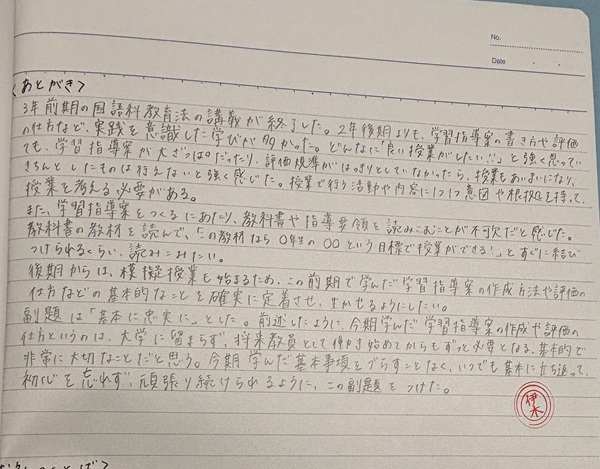 No.
Date
〈あとがき〉
3年前期の国語科教育法の講義が終了した。2年後期よりも、学習指導案の書き方や評価
の仕方など、実践を意識した学びが多かった。どんなに「良い授業がしたい!!」と強く思ってい
ても、学習指導案が大ざっぱだったり、評価規準がはっきりとしていなかったら、授業もあいまいになり、
きちんとしたものは行えないと強く感じた。授業で行う活動や内容に1つ1つ意図や根拠を持って、
授業を考える必要がある。
また、学習指導案をつくるにあたり、教科書や指導要領を読みこむことが不可欠だと感じた。
教科書の教材を読んで、「この教材なら〇年生の〇〇という目標で授業ができる!」とすぐに結び
つけられるくらい、読みこみたい。
後期からは、模擬授業も始まるため、この前期で学んだ学習指導案の作成方法や評価の
仕方などの基本的なことを確実に定着させ、生かせるようにしたい。
副題は「基本に忠実に」とした。前述したように、今期学んだ学習指導案の作成や評価の
仕方というのは、大学に留まらず、将来教員として働き始めてからもずっと必要となる、基本的で
非常に大切なことだと思う。今期学んだ基本事項をづらすことなく、いつでも基本に立ち返って、
初心を忘れず、頑張り続けられるように、この副題をつけた。
伊木